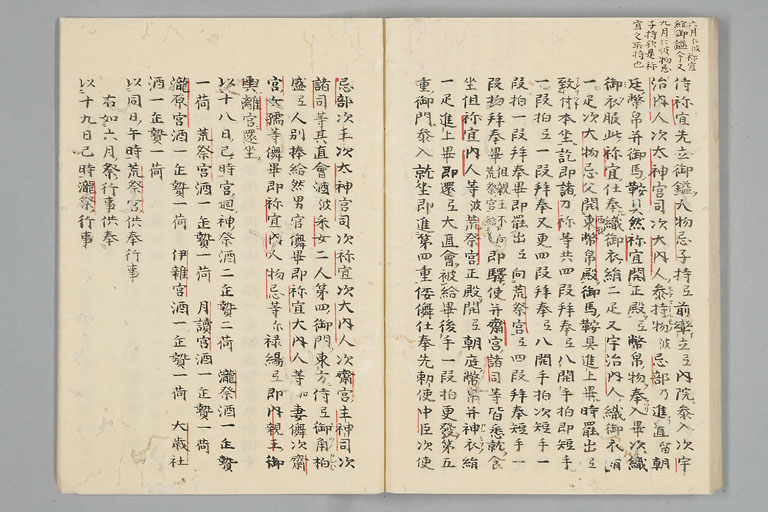 六月仁波祢宜
給御鎰今又
九月仁波物忌
子持欤是祢
宜之所持也
侍祢宜先立御鎰大物忌子持弖前立弖内院参入次宇
治内人次太神宮司次大内人参持物波忌部乃進直留朝
廷幣帛并御馬鞍具然祢宜開正殿弖幣帛物奉入畢次織
御衣服此祢宜仕奉織御衣絹二疋又宇治内人織御衣絹
一疋次大物忌父開東幣帛殿御馬鞍具進上畢時罷出弖
致付本坐訖即諸刀祢等共四段拜奉弖八開手拍即短手
一段拍弖一段拜奉又更四段拜奉弖八開手拍次短手一
段拍一段拜奉畢即罷出弖向荒祭宮弖四段拜奉短手一
段拍拜奉畢 即驛使并齋宮諸司等皆悉就食
坐但祢宜内人等波荒祭宮正殿開弖朝庭幣帛并神衣絹
一疋進上畢即還弖大直會被給畢後手一段拍更發第五
重御門参入就坐即進第四重倭儛仕奉先勅使中臣次使
忌部次王次太神宮司次祢宜次大内人次齋宮主神司次
諸司等其直會酒波采女二人第四御門東方侍弖御角柏
盛弖人別捧給然男官儛畢即祢宜大内人等加妻儛次齋
宮女孺等儛畢即祢宜内人物忌等尓禄緍弖即内親王御
輿離宮還坐
以十八日巳時宮廻神祭酒二缶贄二荷 瀧祭酒一缶贄
一荷 荒祭宮酒一缶贄一荷 月讀宮酒一缶贄一荷
瀧原宮酒一缶贄一荷 伊雜宮酒一缶贄一荷 大歳社
酒一缶贄一荷
以同日午時荒祭宮供奉行事
右如六月祭行事供奉
以十九日巳時瀧祭行事